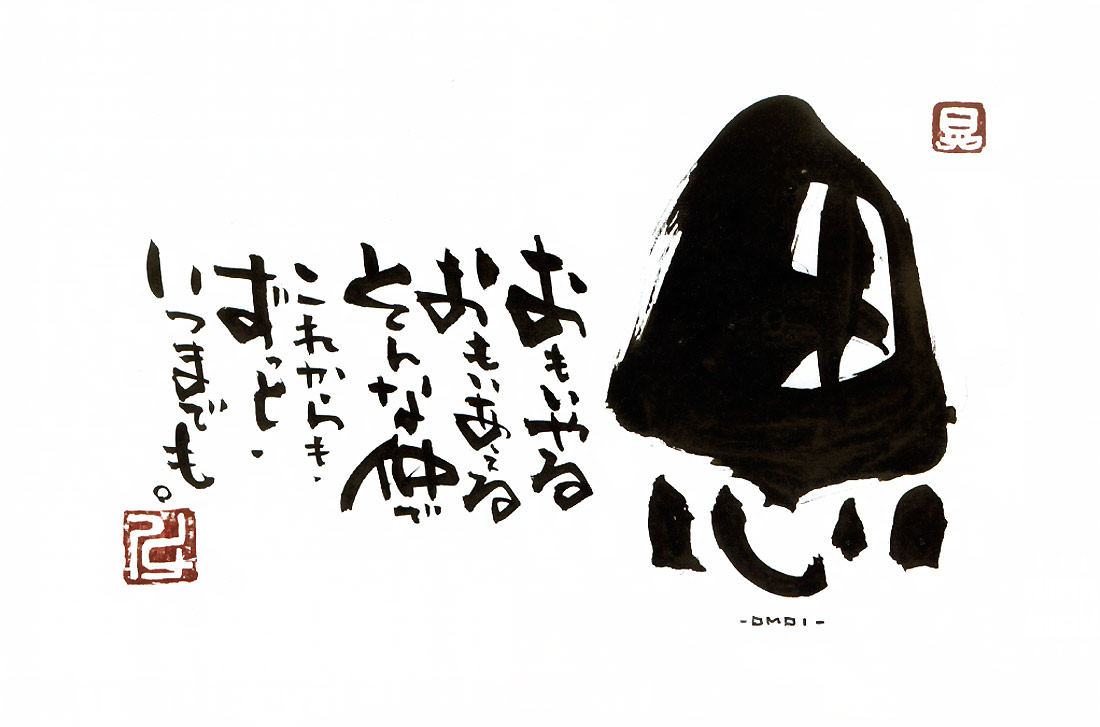 晃
思
-OMOI-
おもいやる
おもいあえる
そんな仲で
これからも・
ずっと・
いつまでも。